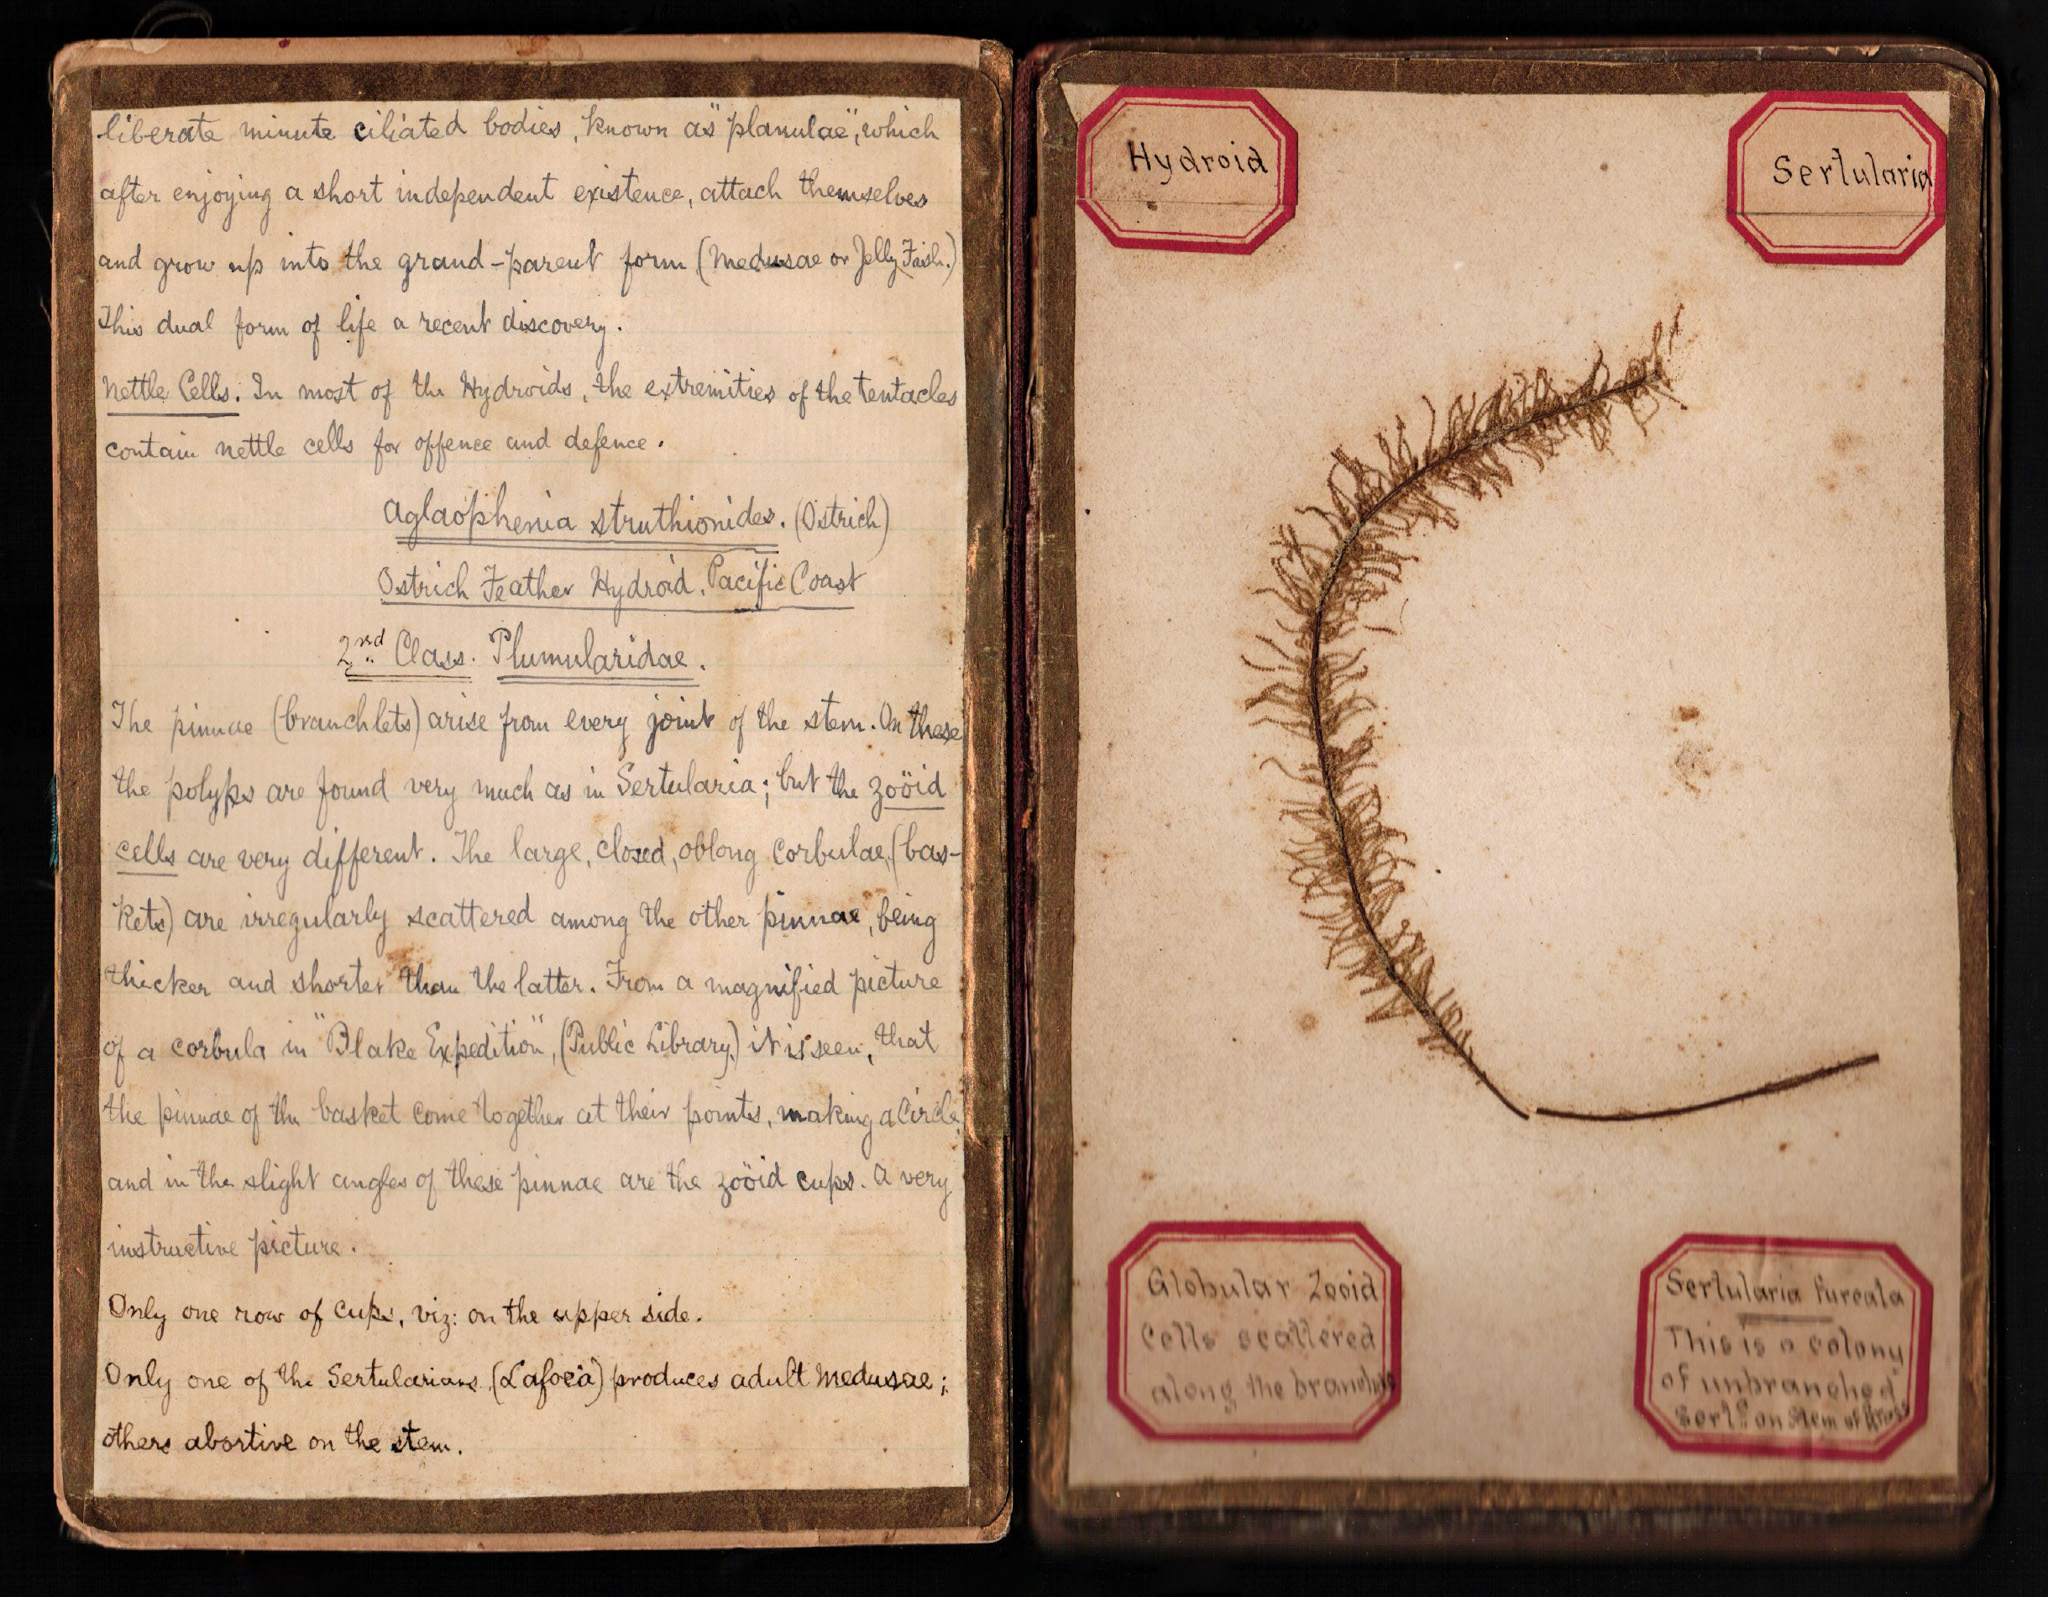 liberate minute ciliated bodies, known as "planulae", which
after enjoying a short independent existence, attach themselves
and grow up into the grand-parent form (Medusae or Jelly Fish.)
This dual form of life a recent discovery.
Nettle Cells. In most of the Hydroids, the extremities of the tentacles
contain nettle cells for offence and defence.
Aglaophenia struthionides. (Ostrich)
Ostrich Feather Hydroid. Pacific Coast
2nd Class. Plumularidae.
The pinnae (branchlets) arise from every joint of the stem. On these
the polyps are found very much as in Sertularia; but the zoöid
cells are very different. The large, closed, oblong corbulae, (bas-
kets) are irregularly scattered among the other pinnae, being
thicker and shorter than the latter. From a magnified picture
of a corbula in "Blake Expedition", (Public Library) it is seen, that
the pinnae of the basket come together at their points, making a circle,
and in the slight angles of these pinnae are the zoöid cups. A very
instructive picture.
Only one row of cups, viz: on the upper side.
Only one of the Sertularians (Lafoëa) produces adult Medusae;
others abortive on the stem.
Hydroid
Sertularia
Globular Zooid
Cells scattered
along the branches
Sertularia furcala
This is a colony
of unbranched
on stem of